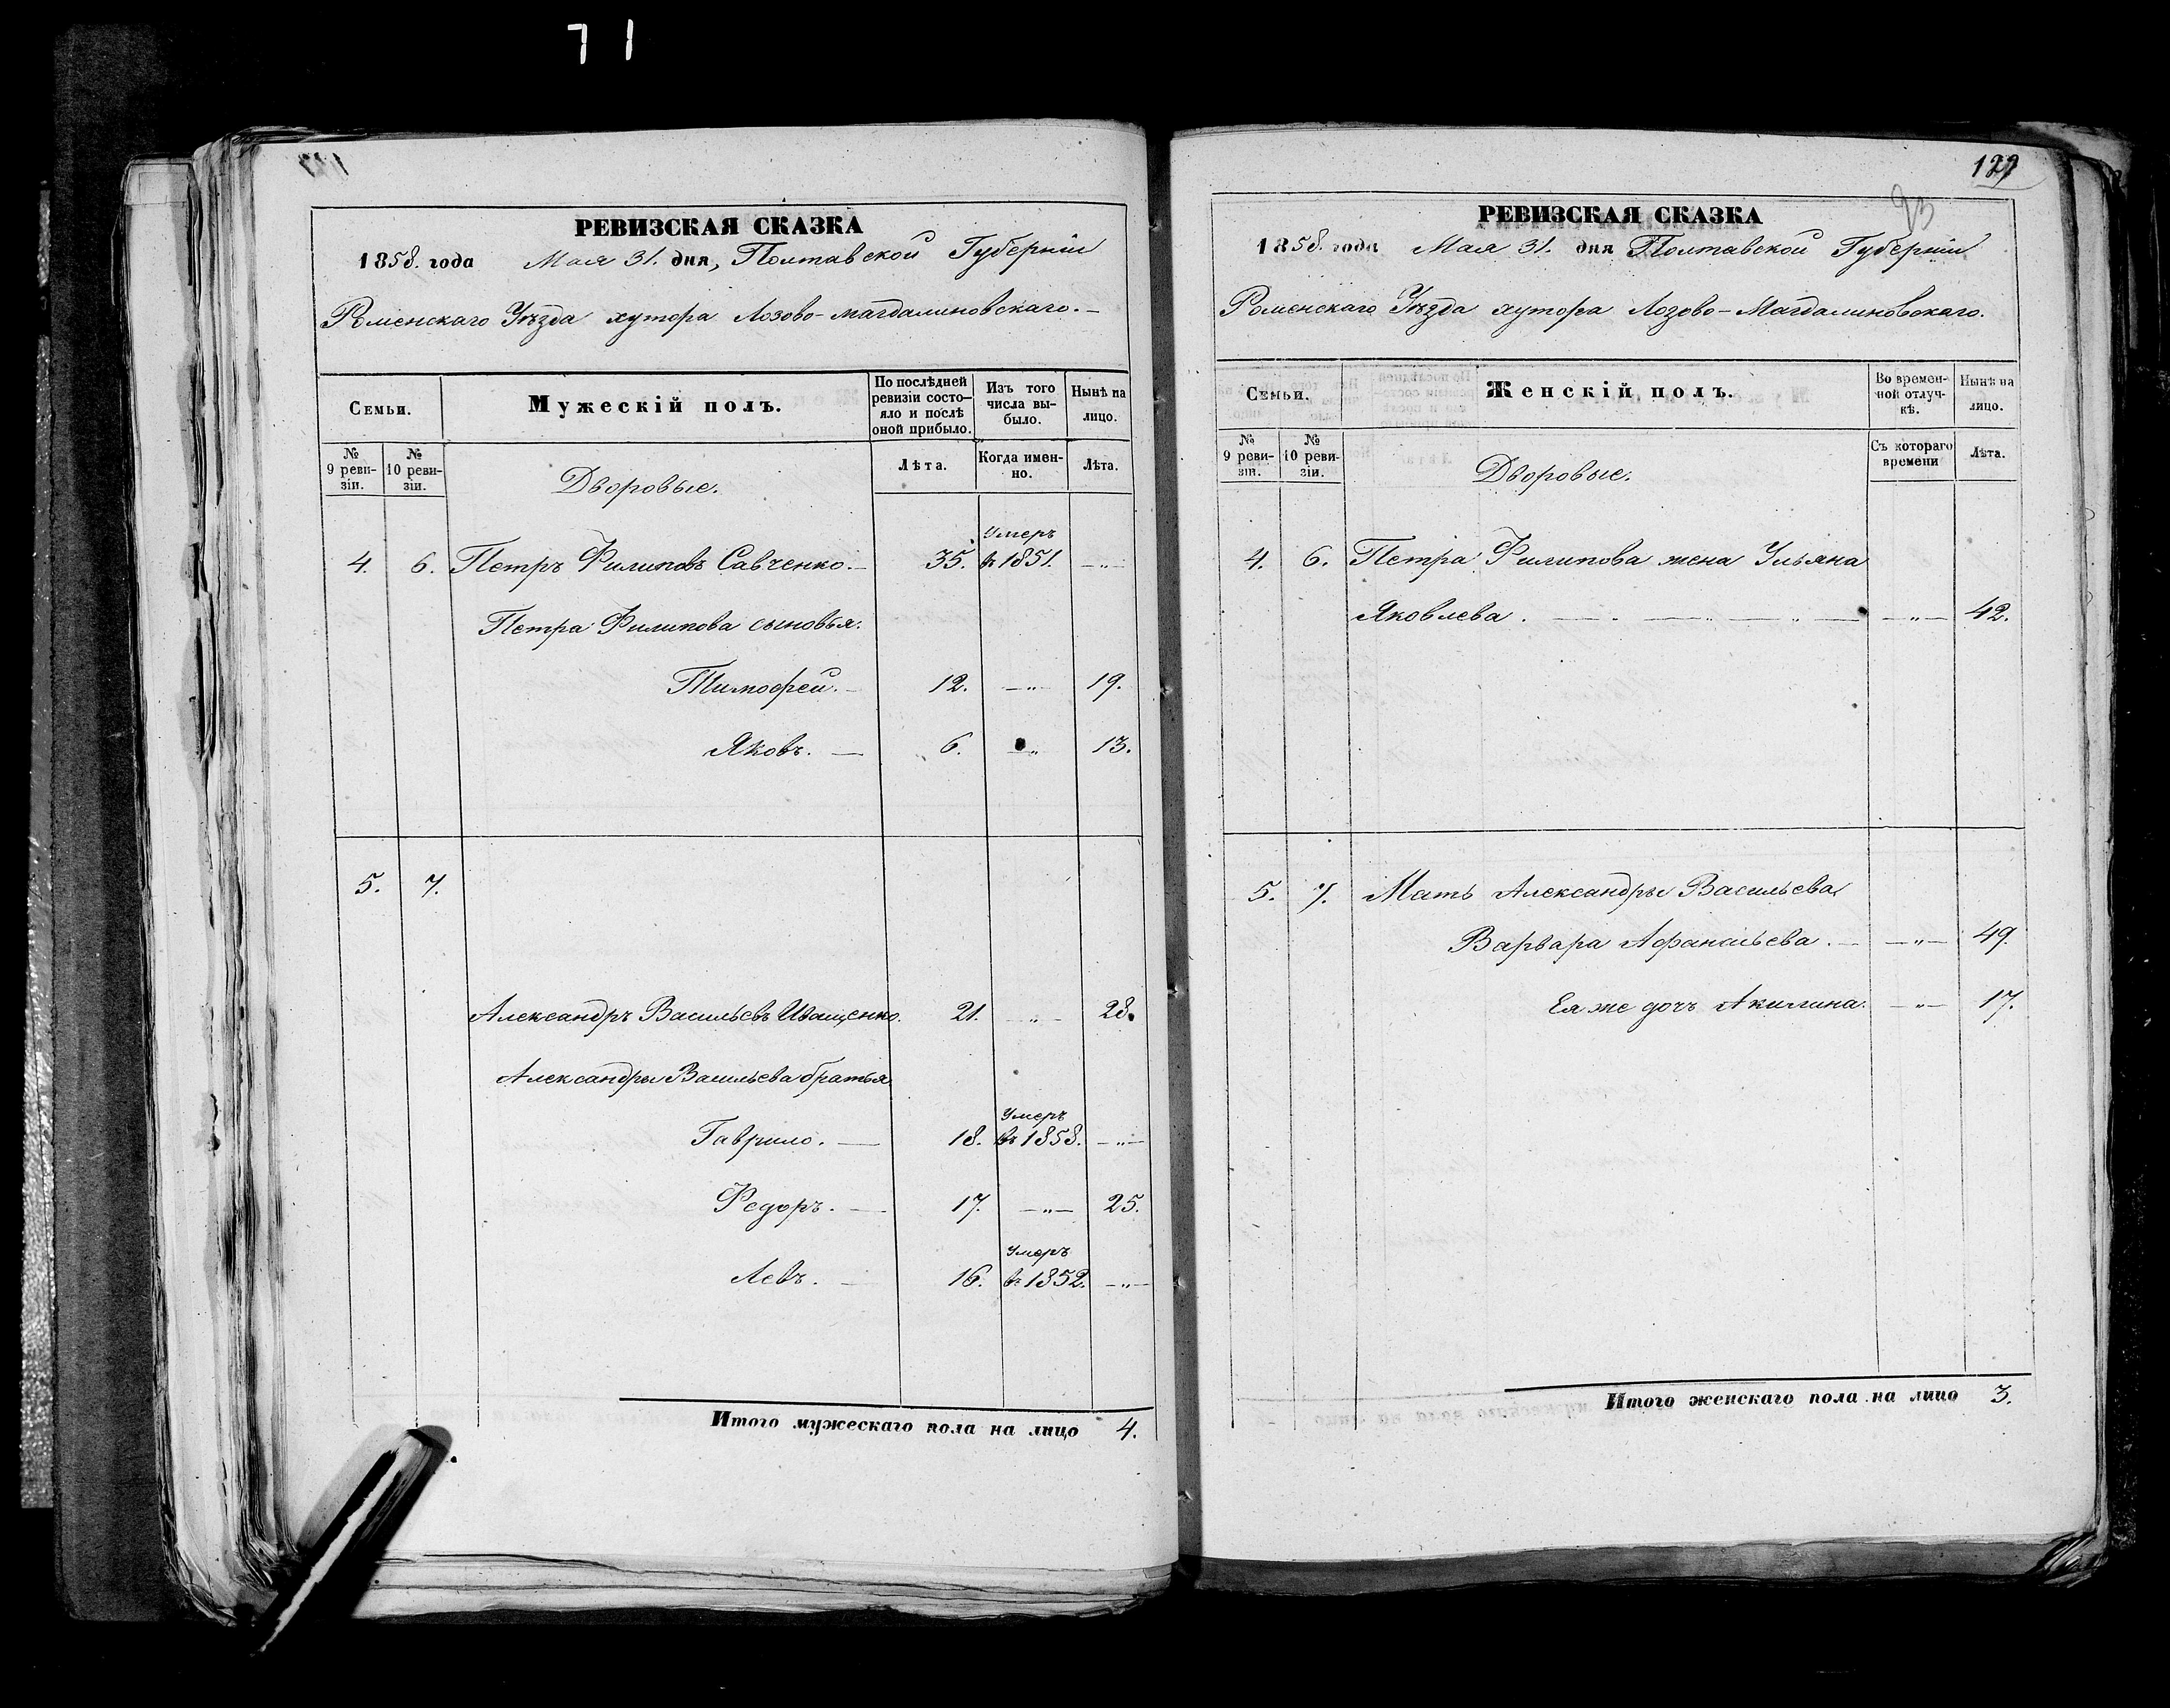 71
РЕВИЗСКАЯ СКАЗКА
1858. года Мая 31. дня, Полтавской Губерніи
Роменскаго Уѣзда хутора Лозово-магдалиновскаго. –
Семьи.
Мужескій полъ.
По послѣдней ревизіи состо-
яло и послѣ
оной прибыло.
Изъ того
числа вы-
было.
Нынѣ на
лицо.
№
9 реви-
зіи.
№
10 реви-
зіи.
Дворовые.
Лѣта.
Когда имен-
но.
Лѣта.
Умеръ
4. 6. Петръ Филиповъ Савченко. – 35. въ 1851. – „ –
Петра Филипова сыновья.
Тимофей. – 12. – „ – 19.
Яковъ. – 6. – „ 13.
5. 7.
Александръ Васильевъ Иващенко. 21. – „ – 28.
Александры Васильева братья
Умеръ
Гаврило. – 18. въ 1858. – „ –
Федоръ. – 17. – „ – 25.
Умеръ
Левъ. – 16. въ 1852. – „ –
Итого мужескаго пола на лицо 4.
РЕВИЗСКАЯ СКАЗКА
1858. года Мая 31. дня Полтавской Губерніи
Роменскаго Уѣзда хутора Лозово-Магдалиновскаго.
Семьи.
Женскій полъ.
Во времен-
ной отлуч-
кѣ.
Нынѣ на
лицо.
№
9 реви-
зіи.
№
10 реви-
зіи.
Дворовые.
Съ котораго
времени
Лѣта.
4. 6. Петра Филипова жена Ульяна
Яковлева. – „ – 42.
5. 7. Мать Александры Васильева
Варвара Афанасьева. – – „ – 49.
Ея же дочь Акилина. – „ – 17.
Итого женскаго пола на лицо 3.